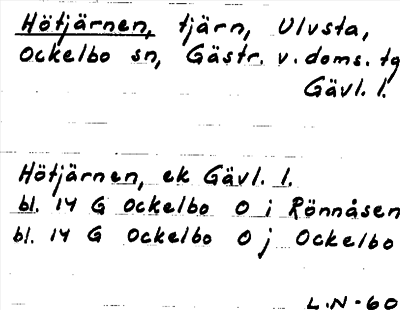 Hötjärnen, tjärn, Ulvsta,
Ockelbo sn, Gästr. v. doms. tg
Gävl. l.
Hötjärnen, ek Gävl. l.
bl. 14 G Ockelbo 0 i Rönnåsen
bl. 14 G Ockelbo 0 j Ockelbo
L.N-60